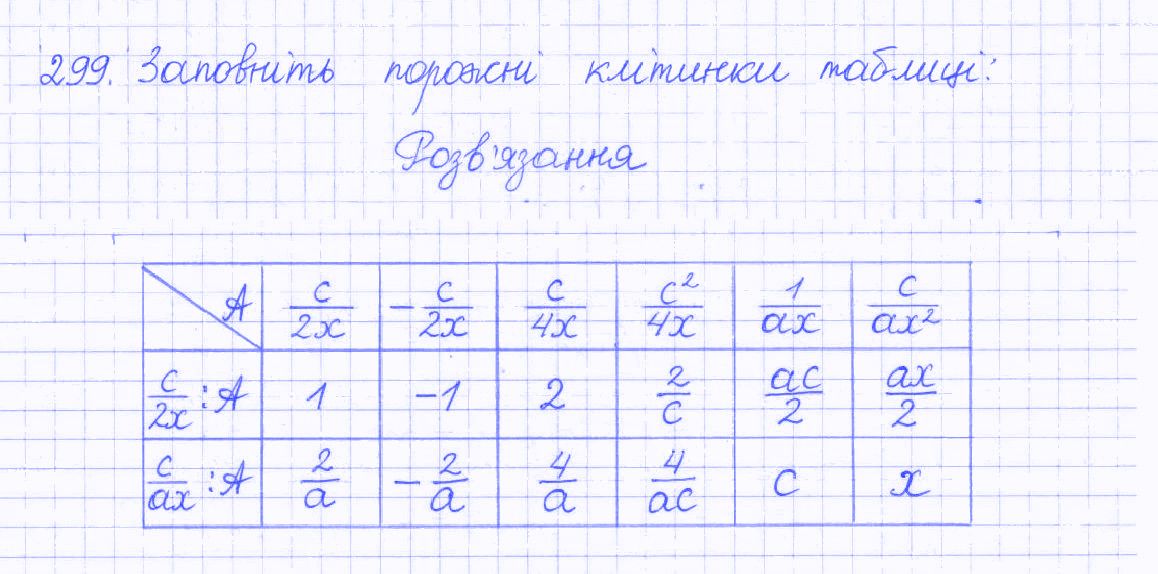 299. Заповніть порожні клітинки таблиці:
Розв'язання
A | c/2x | -c/2x | c/4x | c²/4x | 1/ax | c/ax²
c/2x : A | 1 | -1 | 2 | 2/c | ac/2 | ax/2
c/ax : A | 2/a | -2/a | 4/a | 4/ac | c | x